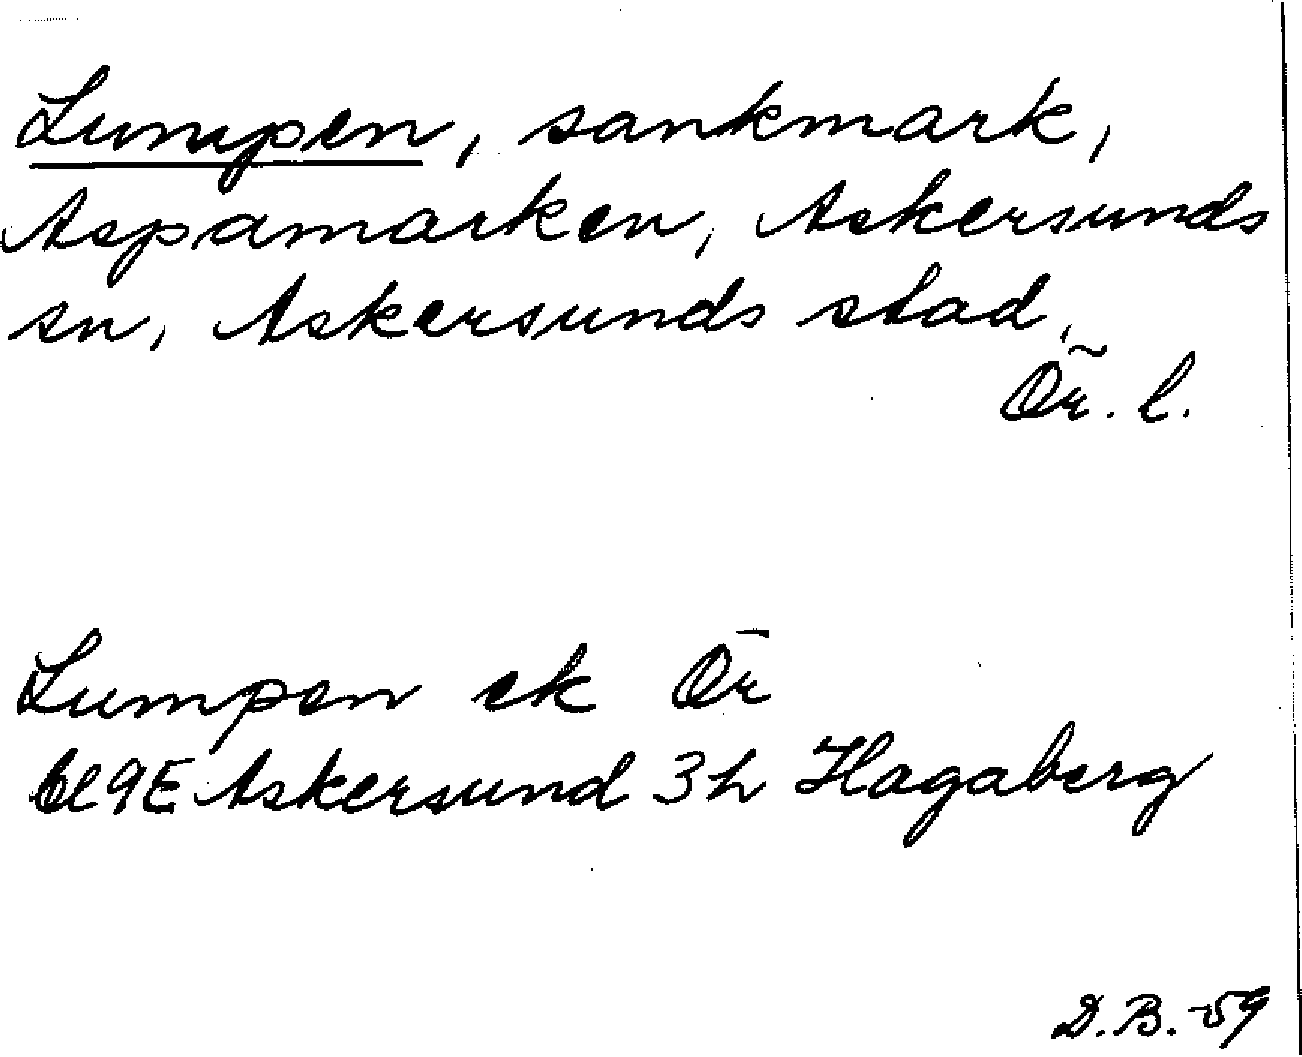 Lumpen, sankmark,
Aspamarken, Askersunds
sn, Askersunds stad,
Ör. l.
Lumpen ek Ör
9E Askersund 3h Hagaberg
D.B. -59